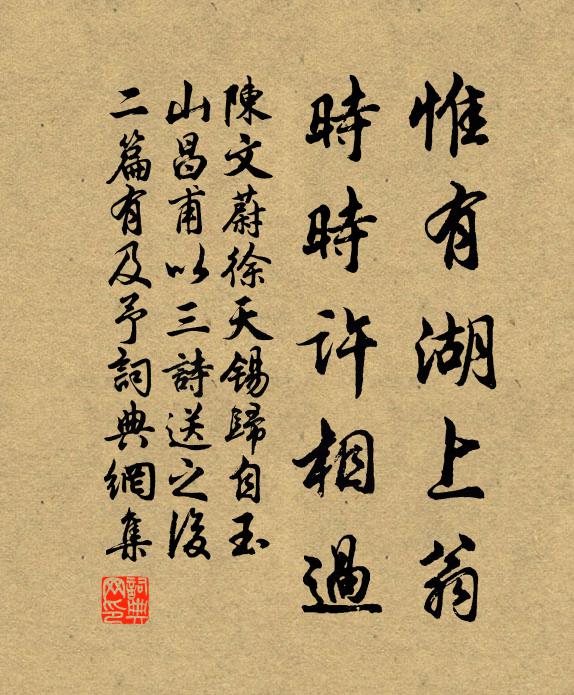 惟有湖上翁
時時許相過
陳文蔚徐天錫歸自玉
山昌甫以三詩送之後
二篇有及予詞典網集
詞典
网印